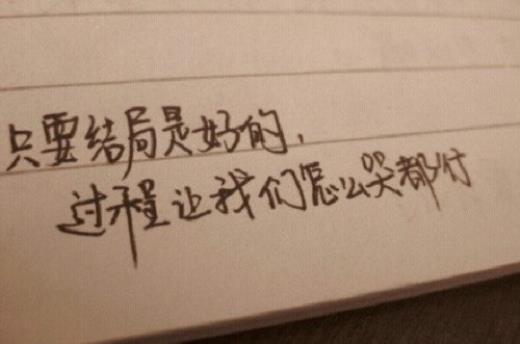 只要结局是好的,
过程让我们怎么哭都付